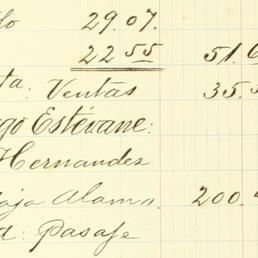 lo 29.07.
22 55 51.6
ta. Ventas 35.5
go Estévane:
Hernandez
aja Alamo. 200.
d: Pasaje